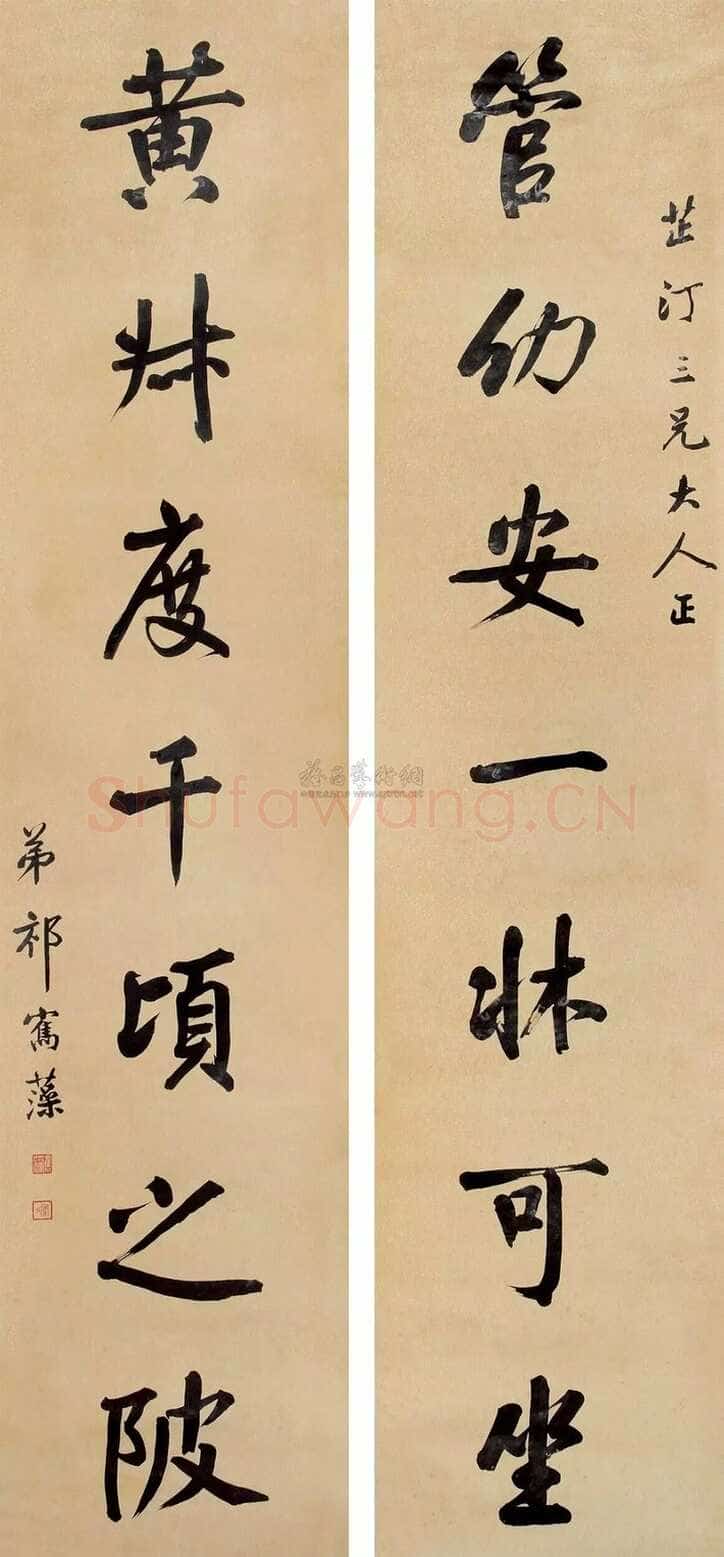 芷汀三兄大人正
管幼安一牀可坐
黄叔度千頃之陂
弟祁寯藻
Shufawang.CN